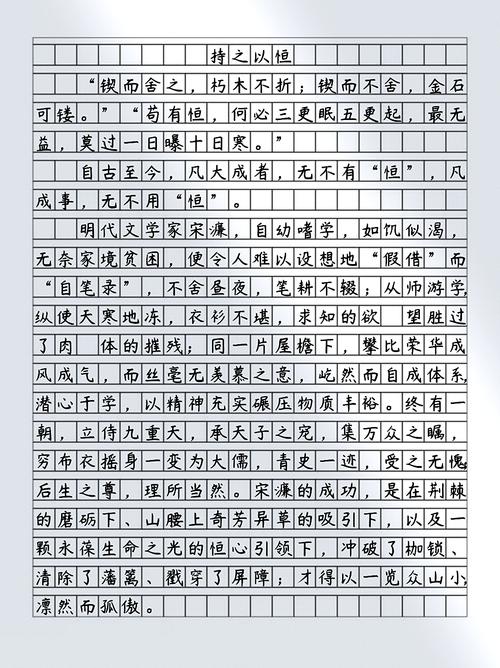 持之以恒
“锲而舍之，朽木不折；锲而不舍，金石
可镂。”“苟有恒，何必三更眠五更起，最无
益，莫过一日曝十日寒。”
自古至今，凡大成者，无不有“恒”，凡
成事，无不用“恒”。
明代文学家宋濂，自幼嗜学，如饥似渴，
无奈家境贫困，便令人难以设想地“假借”而
“自笔录”，不舍昼夜，笔耕不辍；从师游学，
纵使天寒地冻，衣衫不堪，求知的欲 望胜过
了肉 体的摧残；同一片屋檐下，攀比荣华成
风成气，而丝毫无羡慕之意，屹然而自成体系，
潜心于学，以精神充实碾压物质丰裕。终有一
朝，立侍九重天，承天子之宠，集万众之瞩，
穷布衣摇身一变为大儒，青史一迹，受之无愧，
后生之尊，理所当然。宋濂的成功，是在荆棘
的磨砺下、山腰上奇芳异草的吸引下，以及一
颗永葆生命之光的恒心引领下，冲破了枷锁、
清除了藩篱、戳穿了屏障；才得以一览众山小，
凛然而孤傲。